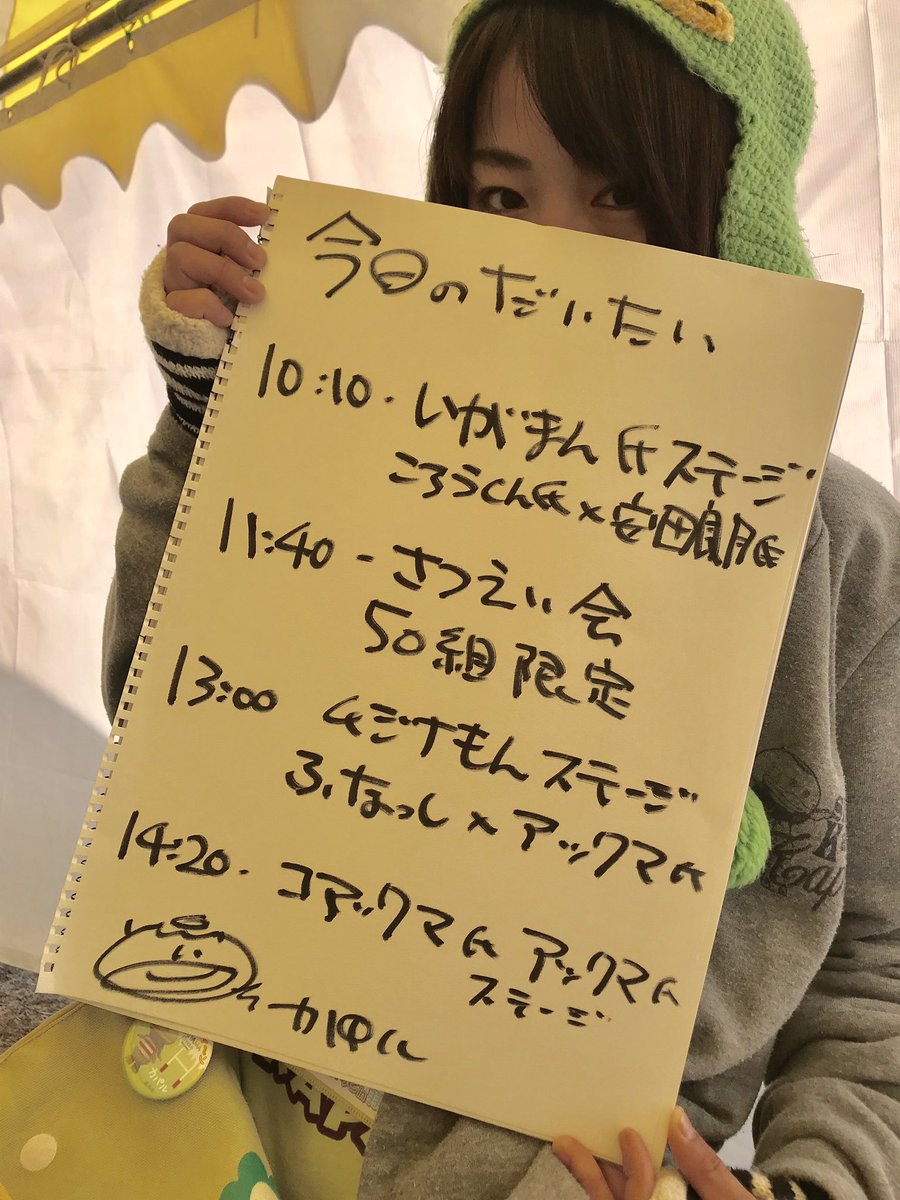 今日のだいたい
10:10・いがまん氏ステージ
ころうくん氏×安田朗氏
11:40-さつえい会
50組限定
13:00 4ジナもんステージ
ふなっしー×アックマ氏
14:20・コアックマ氏アックマ氏
ステージ
カパル
カパル